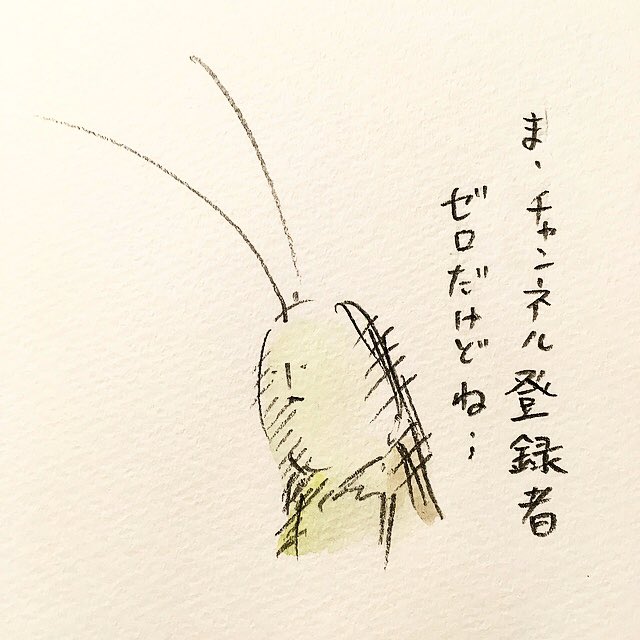 ま、チャンネル登録者
ゼロだけどね;